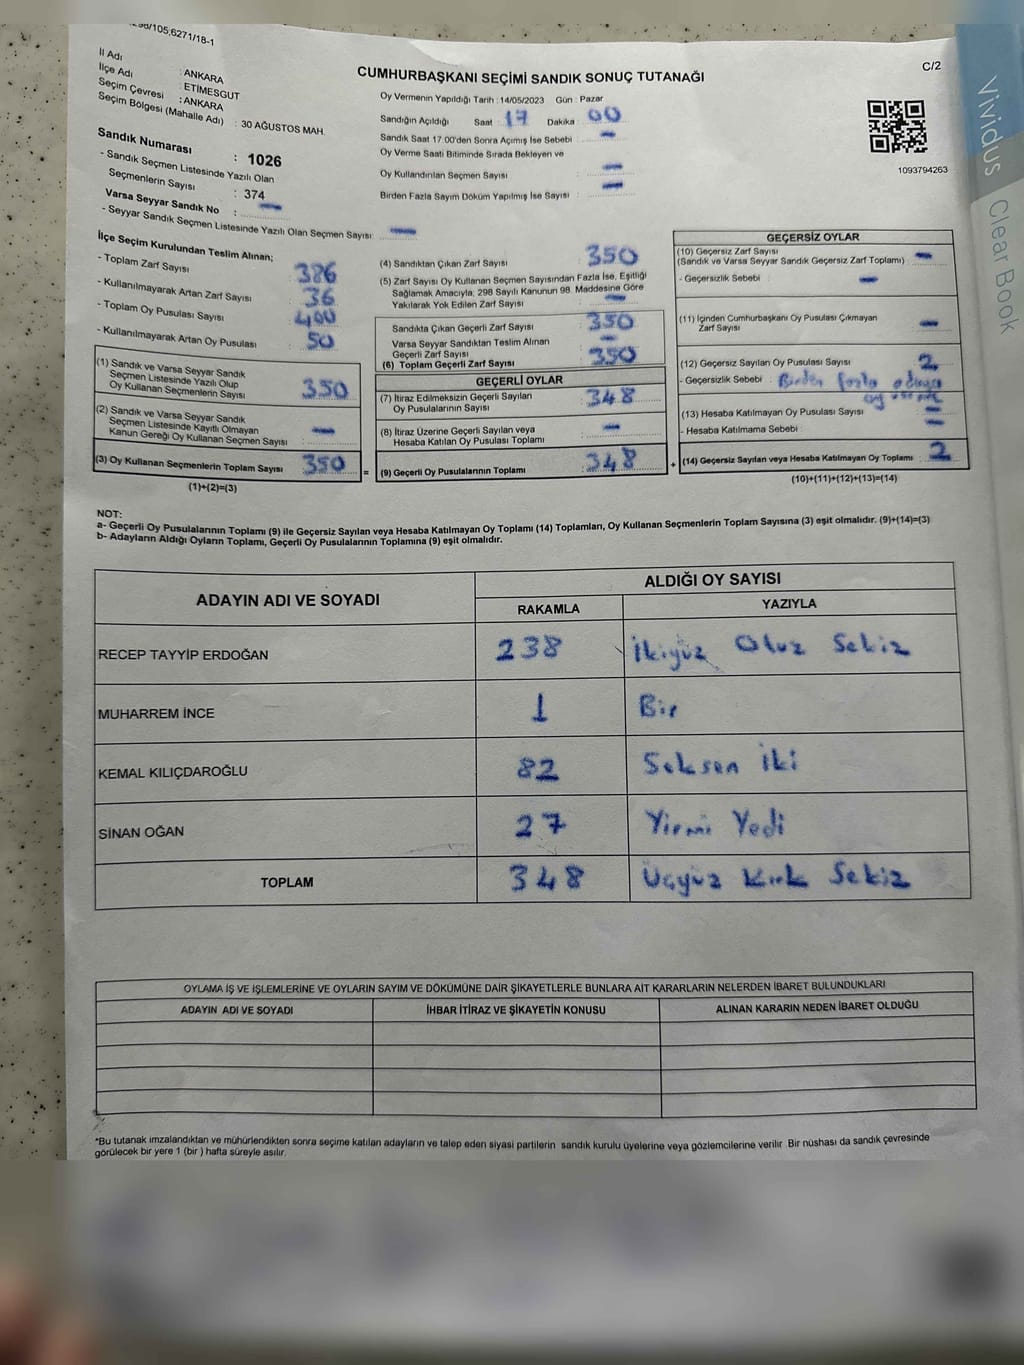 /105,6271/18-1
C/2
CUMHURBAŞKANI SEÇİMİ SANDIK SONUÇ TUTANAĞI
İl Adı : ANKARA
İlçe Adı : ETİMESGUT
Seçim Çevresi : ANKARA
Seçim Bölgesi (Mahalle Adı) : 30 AĞUSTOS MAH.
Sandık Numarası : 1026
- Sandık Seçmen Listesinde Yazılı Olan
Seçmenlerin Sayısı : 374
Varsa Seyyar Sandık No : -
- Seyyar Sandık Seçmen Listesinde Yazılı Olan Seçmen Sayısı: -
Oy Vermenin Yapıldığı Tarih : 14/05/2023 Gün : Pazar
Sandığın Açıldığı Saat : 17 Dakika : 00
Sandık Saat 17:00'den Sonra Açımış İse Sebebi : -
Oy Verme Saati Bitiminde Sırada Bekleyen ve
Oy Kullandırılan Seçmen Sayısı : -
Birden Fazla Sayım Döküm Yapılmış İse Sayısı : -
1093794263
Vividus Clear Book
İlçe Seçim Kurulundan Teslim Alınan;
- Toplam Zarf Sayısı 386
- Kullanılmayarak Artan Zarf Sayısı 36
- Toplam Oy Pusulası Sayısı 400
- Kullanılmayarak Artan Oy Pusulası 50
(1) Sandık ve Varsa Seyyar Sandık
Seçmen Listesinde Yazılı Olup
Oy Kullanan Seçmenlerin Sayısı 350
(2) Sandık ve Varsa Seyyar Sandık
Seçmen Listesinde Kayıtlı Olmayan
Kanun Gereği Oy Kullanan Seçmen Sayısı : -
(3) Oy Kullanan Seçmenlerin Toplam Sayısı 350 =
(1)+(2)=(3)
(4) Sandıktan Çıkan Zarf Sayısı : 350
(5) Zarf Sayısı Oy Kullanan Seçmen Sayısından Fazla İse, Eşitliği
Sağlamak Amacıyla; 298 Sayılı Kanunun 98. Maddesine Göre
Yakılarak Yok Edilen Zarf Sayısı : -
Sandıkta Çıkan Geçerli Zarf Sayısı : 350
Varsa Seyyar Sandıktan Teslim Alınan
Geçerli Zarf Sayısı : -
(6) Toplam Geçerli Zarf Sayısı : 350
GEÇERLİ OYLAR
(7) İtiraz Edilmeksizin Geçerli Sayılan
Oy Pusulalarının Sayısı : 348
(8) İtiraz Üzerine Geçerli Sayılan veya
Hesaba Katılan Oy Pusulası Toplamı : -
(9) Geçerli Oy Pusulalarının Toplamı : 348 +
GEÇERSİZ OYLAR
(10) Geçersiz Zarf Sayısı
(Sandık ve Varsa Seyyar Sandık Geçersiz Zarf Toplamı) : -
- Geçersizlik Sebebi : -
(11) İçinden Cumhurbaşkanı Oy Pusulası Çıkmayan
Zarf Sayısı : -
(12) Geçersiz Sayılan Oy Pusulası Sayısı : 2
- Geçersizlik Sebebi : Birden fazla adaya
oy verme
(13) Hesaba Katılmayan Oy Pusulası Sayısı : -
- Hesaba Katılmama Sebebi : -
(14) Geçersiz Sayılan veya Hesaba Katılmayan Oy Toplamı : 2
(10)+(11)+(12)+(13)=(14)
NOT:
a- Geçerli Oy Pusulalarının Toplamı (9) ile Geçersiz Sayılan veya Hesaba Katılmayan Oy Toplamı (14) Toplamları, Oy Kullanan Seçmenlerin Toplam Sayısına (3) eşit olmalıdır. (9)+(14)=(3)
b- Adayların Aldığı Oyların Toplamı, Geçerli Oy Pusulalarının Toplamına (9) eşit olmalıdır.
ADAYIN ADI VE SOYADI ALDIĞI OY SAYISI
RAKAMLA YAZIYLA
RECEP TAYYİP ERDOĞAN 238 İkiyüz Otuz Sekiz
MUHARREM İNCE 1 Bir
KEMAL KILIÇDAROĞLU 82 Seksen İki
SİNAN OĞAN 27 Yirmi Yedi
TOPLAM 348 Üçyüz Kırk Sekiz
OYLAMA İŞ VE İŞLEMLERİNE VE OYLARIN SAYIM VE DÖKÜMÜNE DAİR ŞİKAYETLERLE BUNLARA AİT KARARLARIN NELERDEN İBARET BULUNDUKLARI
ADAYIN ADI VE SOYADI İHBAR İTİRAZ VE ŞİKAYETİN KONUSU ALINAN KARARIN NEDEN İBARET OLDUĞU
*Bu tutanak imzalandıktan ve mühürlendikten sonra seçime katılan adayların ve talep eden siyasi partilerin sandık kurulu üyelerine veya gözlemcilerine verilir Bir nüshası da sandık çevresinde
görülecek bir yere 1 (bir ) hafta süreyle asılır.